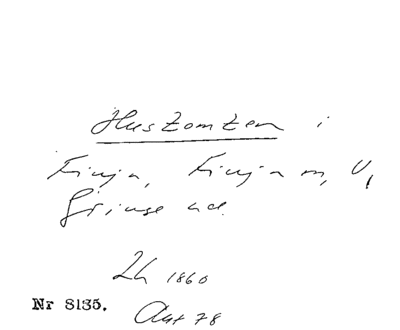 Hustomten i
Finja, Finja m, V,
Göinge hd.
Lh 1860
Nr 8135.
Avt 78